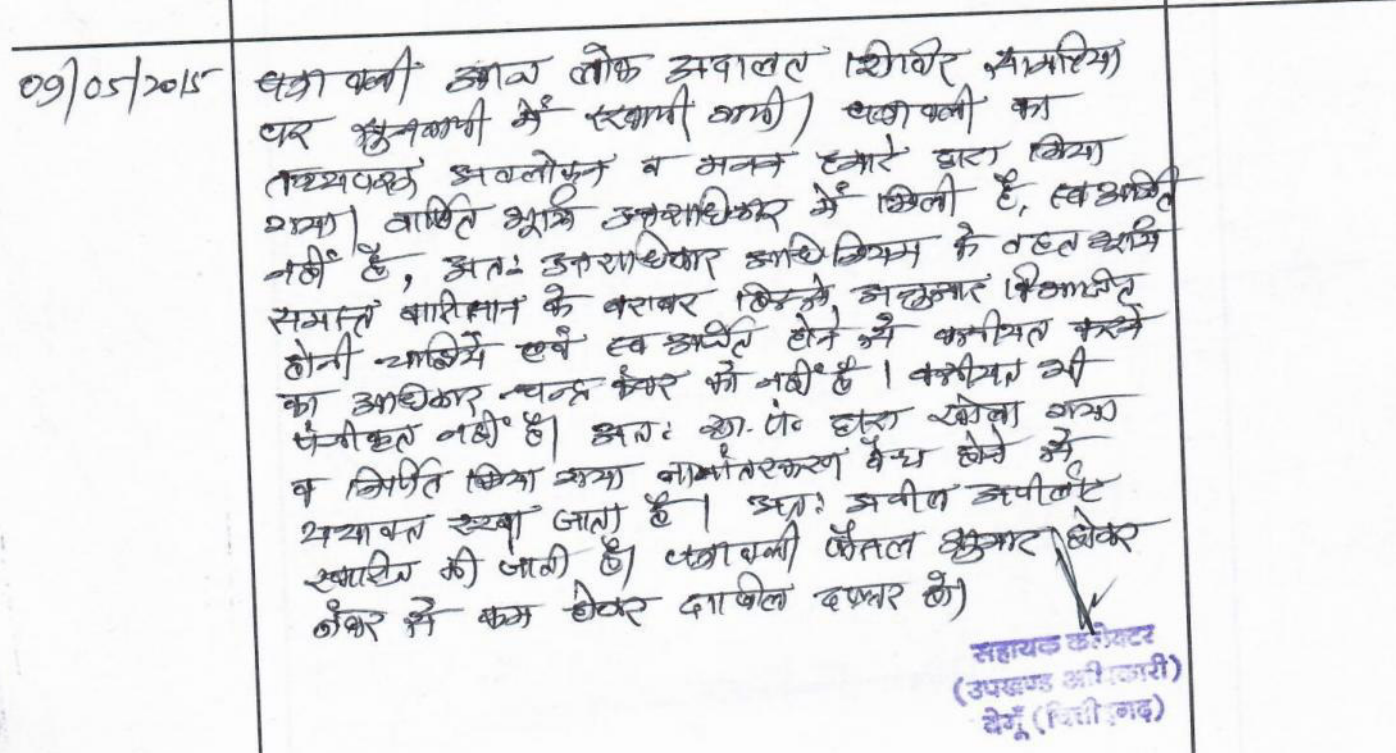 09/05/2015
पत्रावली आज लोक अदालत शिविर सामरिया
पर सुनवायी में रखी गयी। पत्रावली का
तथ्यपरक अवलोकन व मनन हमारे द्वारा किया
गया। वर्णित भूमि उत्तराधिकार में मिली है, स्व अर्जित
नहीं है, अतः उत्तराधिकार अधिनियम के तहत भूमि
समस्त वारिसान के बराबर हिस्से अनुसार विभाजित
होनी चाहिये एवं स्व अर्जित होने से वसीयत करने
का अधिकार चन्द्र कंवर को नहीं है। वसीयत भी
पंजीकृत नहीं है। अतः ग्रा. पं. द्वारा खोला गया
व निर्णित किया गया नामांतरकरण वैध होने से
यथावत रखा जाता है। अतः अपील अपीलांट
खारीज की जाती है। पत्रावली फैसल शुमार होकर
नंबर से कम होकर दाखील दफ्तर हो।
सहायक कलेक्टर
(उपखण्ड अधिकारी)
बेगूँ (चित्तौड़गढ़)